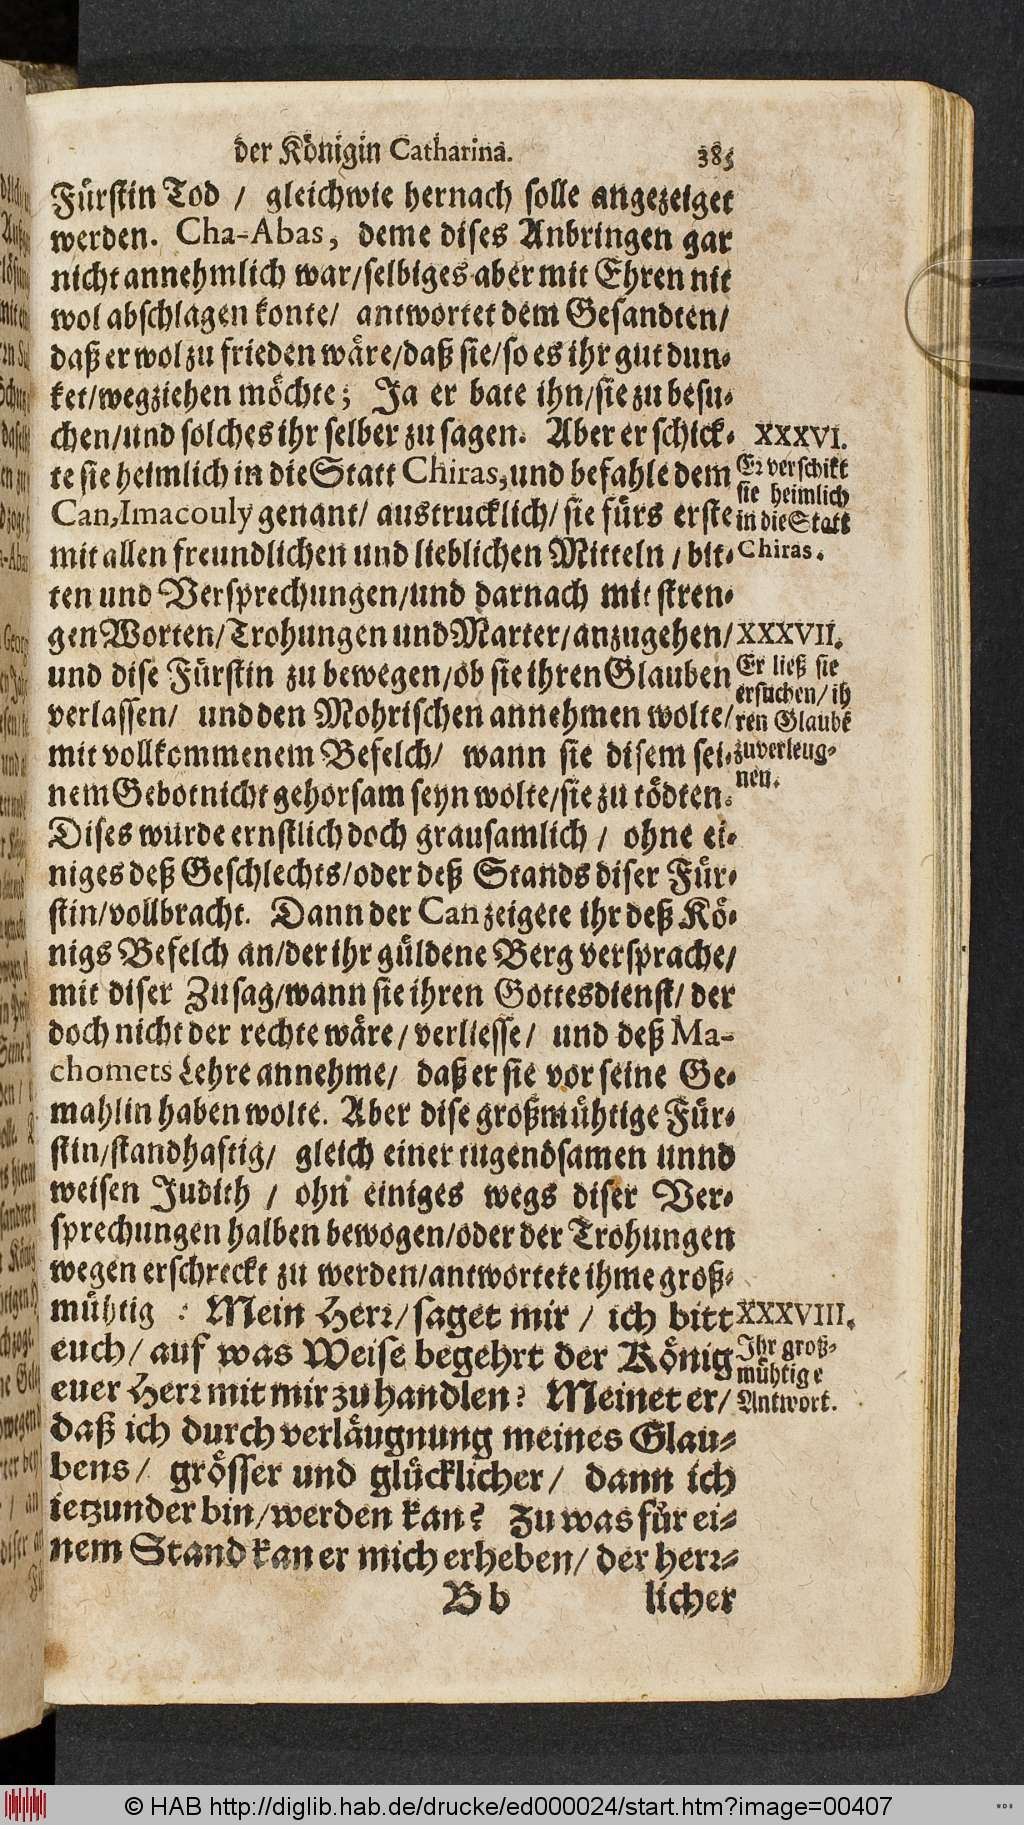 der Königin Catharina. 385
Fürstin Tod / gleichwie hernach solle angezeiget
werden. Cha-Abas, deme dises Anbringen gar
nicht annehmlich war/selbiges aber mit Ehren nit
wol abschlagen konte/ antwortet dem Gesandten/
daß er wol zu frieden wäre/daß sie/so es ihr gut dun-
ket/wegziehen möchte; Ja er bate ihn/sie zu besu-
chen/und solches ihr selber zu sagen. Aber er schick-
te sie heimlich in die Statt Chiras, und befahle dem
Can, Imacouly genant/ austrucklich/ sie fürs erste
mit allen freundlichen und lieblichen Mitteln / bit-
ten und Versprechungen/und darnach mit stren-
gen Worten/Trohungen und Marter/anzugehen/
und dise Fürstin zu bewegen/ob sie ihren Glauben
verlassen/ und den Mohrischen annehmen wolte/
mit vollkommenem Befelch/ wann sie disem sei-
nem Gebot nicht gehorsam seyn wolte/sie zu tödten.
Dises wurde ernstlich doch grausamlich / ohne ei-
niges deß Geschlechts/oder deß Stands diser Für-
stin/vollbracht. Dann der Can zeigete ihr deß Kö-
nigs Befelch an/der ihr güldene Berg versprache/
mit diser Zusag/wann sie ihren Gottesdienst/ der
doch nicht der rechte wäre/ verliesse/ und deß Ma-
chomets Lehre annehme/ daß er sie vor seine Ge-
mahlin haben wolte. Aber dise großmühtige Für-
stin/standhaftig/ gleich einer tugendsamen unnd
weisen Judith / ohn einiges wegs diser Ver-
sprechungen halben bewogen/oder der Trohungen
wegen erschreckt zu werden/antwortete ihme groß-
mühtig : Mein Herr/saget mir / ich bitt
euch/ auf was Weise begehrt der König
euer Herr mit mir zu handlen? Meinet er/
daß ich durch verläugnung meines Glau-
bens/ grösser und glücklicher/ dann ich
ietzunder bin/werden kan? Zu was für ei-
nem Stand kan er mich erheben/ der herr-
Bb licher
XXXVI.
Er verschikt
sie heimlich
in die Statt
Chiras.
XXXVII.
Er ließ sie
ersuchen/ ih
ren Glaubē
zuverleug-
nen.
XXXVIII.
Ihr groß-
mühtige
Antwort.
© HAB http://diglib.hab.de/drucke/ed000024/start.htm?image=00407